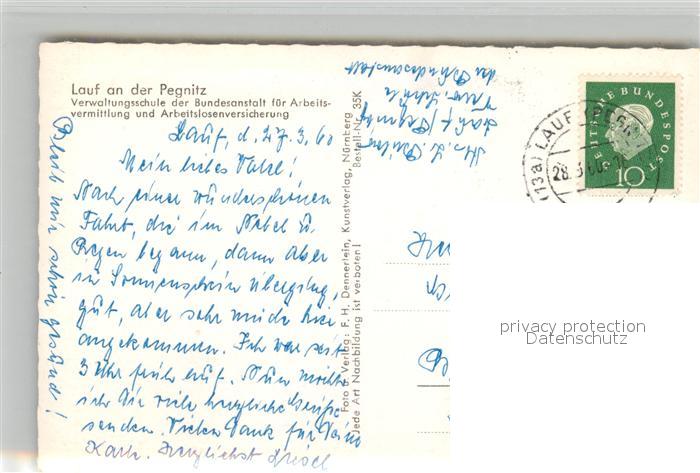 Lauf an der Pegnitz
Verwaltungsschule der Bundesanstalt für Arbeits-
vermittlung und Arbeitslosenversicherung
Lauf, d. 27.3.60
Mein liebes
Nach einer wunderschönen
Fahrt, die im Nebel u.
Regen begann, dann aber
in Sonnenschein überging,
gut, aber sehr müde hier
angekommen. Ich war seit
3 Uhr früh auf. Nun möchte
ich Dir viele herzliche Grüße
senden. Vielen Dank für Deine
Karte. Herzlichst
Bleib mir schön gesund!
Foto u. Verlag: F. H. Dennerlein, Kunstverlag, Nürnberg
Jede Art Nachbildung ist verboten!
Bestell-Nr. 35K
der Bundesanstalt
Lauf/Pegnitz
DEUTSCHE BUNDESPOST
10
(13a) LAUF (PEGN
28.3.60
privacy protection
Datenschutz